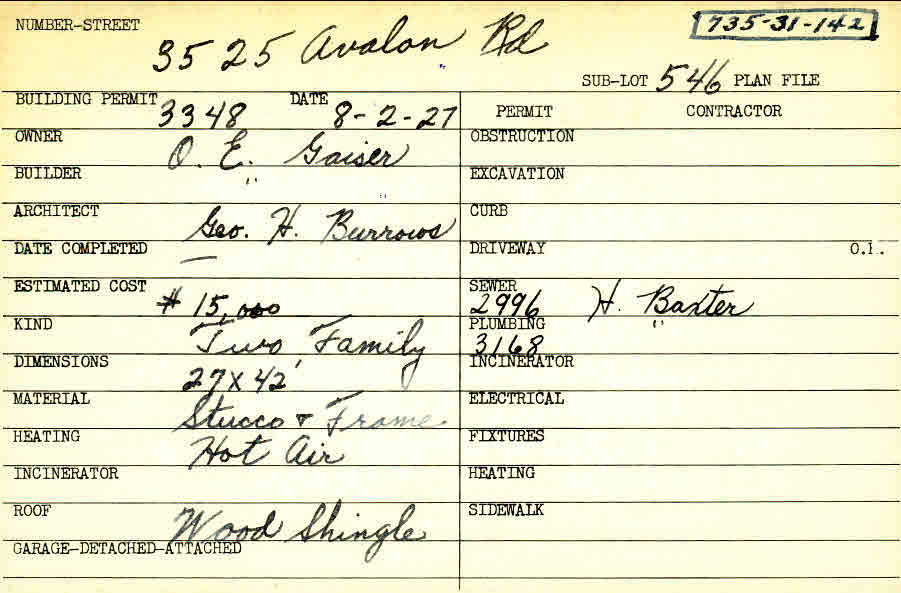 NUMBER-STREET 3525 Avalon Rd 735-31-142
SUB-LOT 546 PLAN FILE
BUILDING PERMIT 3348 DATE 8-2-27
PERMIT CONTRACTOR
OWNER O. E. Gaiser
OBSTRUCTION
BUILDER " "
EXCAVATION
ARCHITECT Geo. H. Burrows
CURB
DATE COMPLETED —
DRIVEWAY O.L.
ESTIMATED COST $ 15,000
SEWER 2996 H. Baxter
KIND Two Family
PLUMBING 3168 "
DIMENSIONS 27 x 42'
INCINERATOR
MATERIAL Stucco & Frame
ELECTRICAL
HEATING Hot Air
FIXTURES
INCINERATOR
HEATING
ROOF Wood Shingle
SIDEWALK
GARAGE-DETACHED-ATTACHED